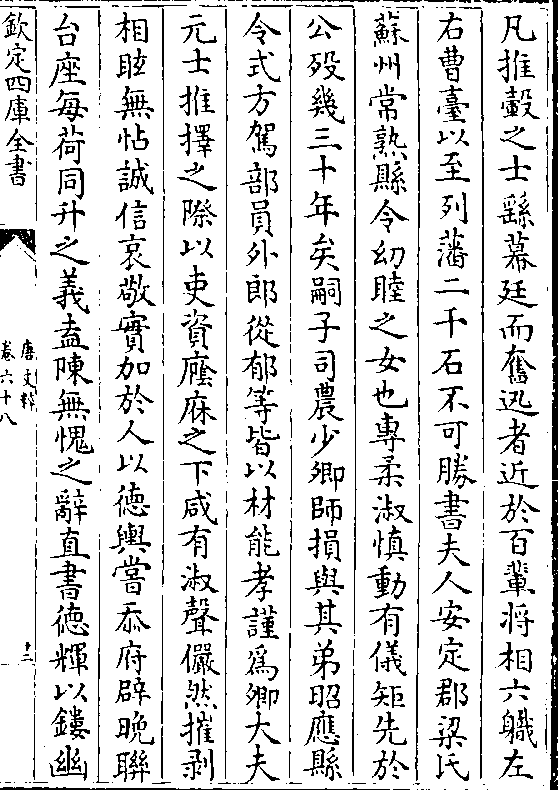 凡推轂之士繇幕廷而奮迅者近於百輩將相六職左
右曹臺以至列藩二千石不可勝書夫人安定郡梁氏
蘇州常熟縣令幼睦之女也專柔淑慎動有儀矩先於
公殁幾三十年矣嗣子司農少卿師損與其弟昭應縣
令式方駕部員外郎從郁等皆以材能孝謹爲卿大夫
元士推擇之際以吏資廕庥之下咸有淑聲儼然摧剥
相䀲無怙誠信哀敬實加於人以德輿嘗忝府辟晚聯
台座每荷同升之義盍陳無愧之辭直書德輝以鏤幽
欽定四庫全書
唐文粹
卷六十八
十二